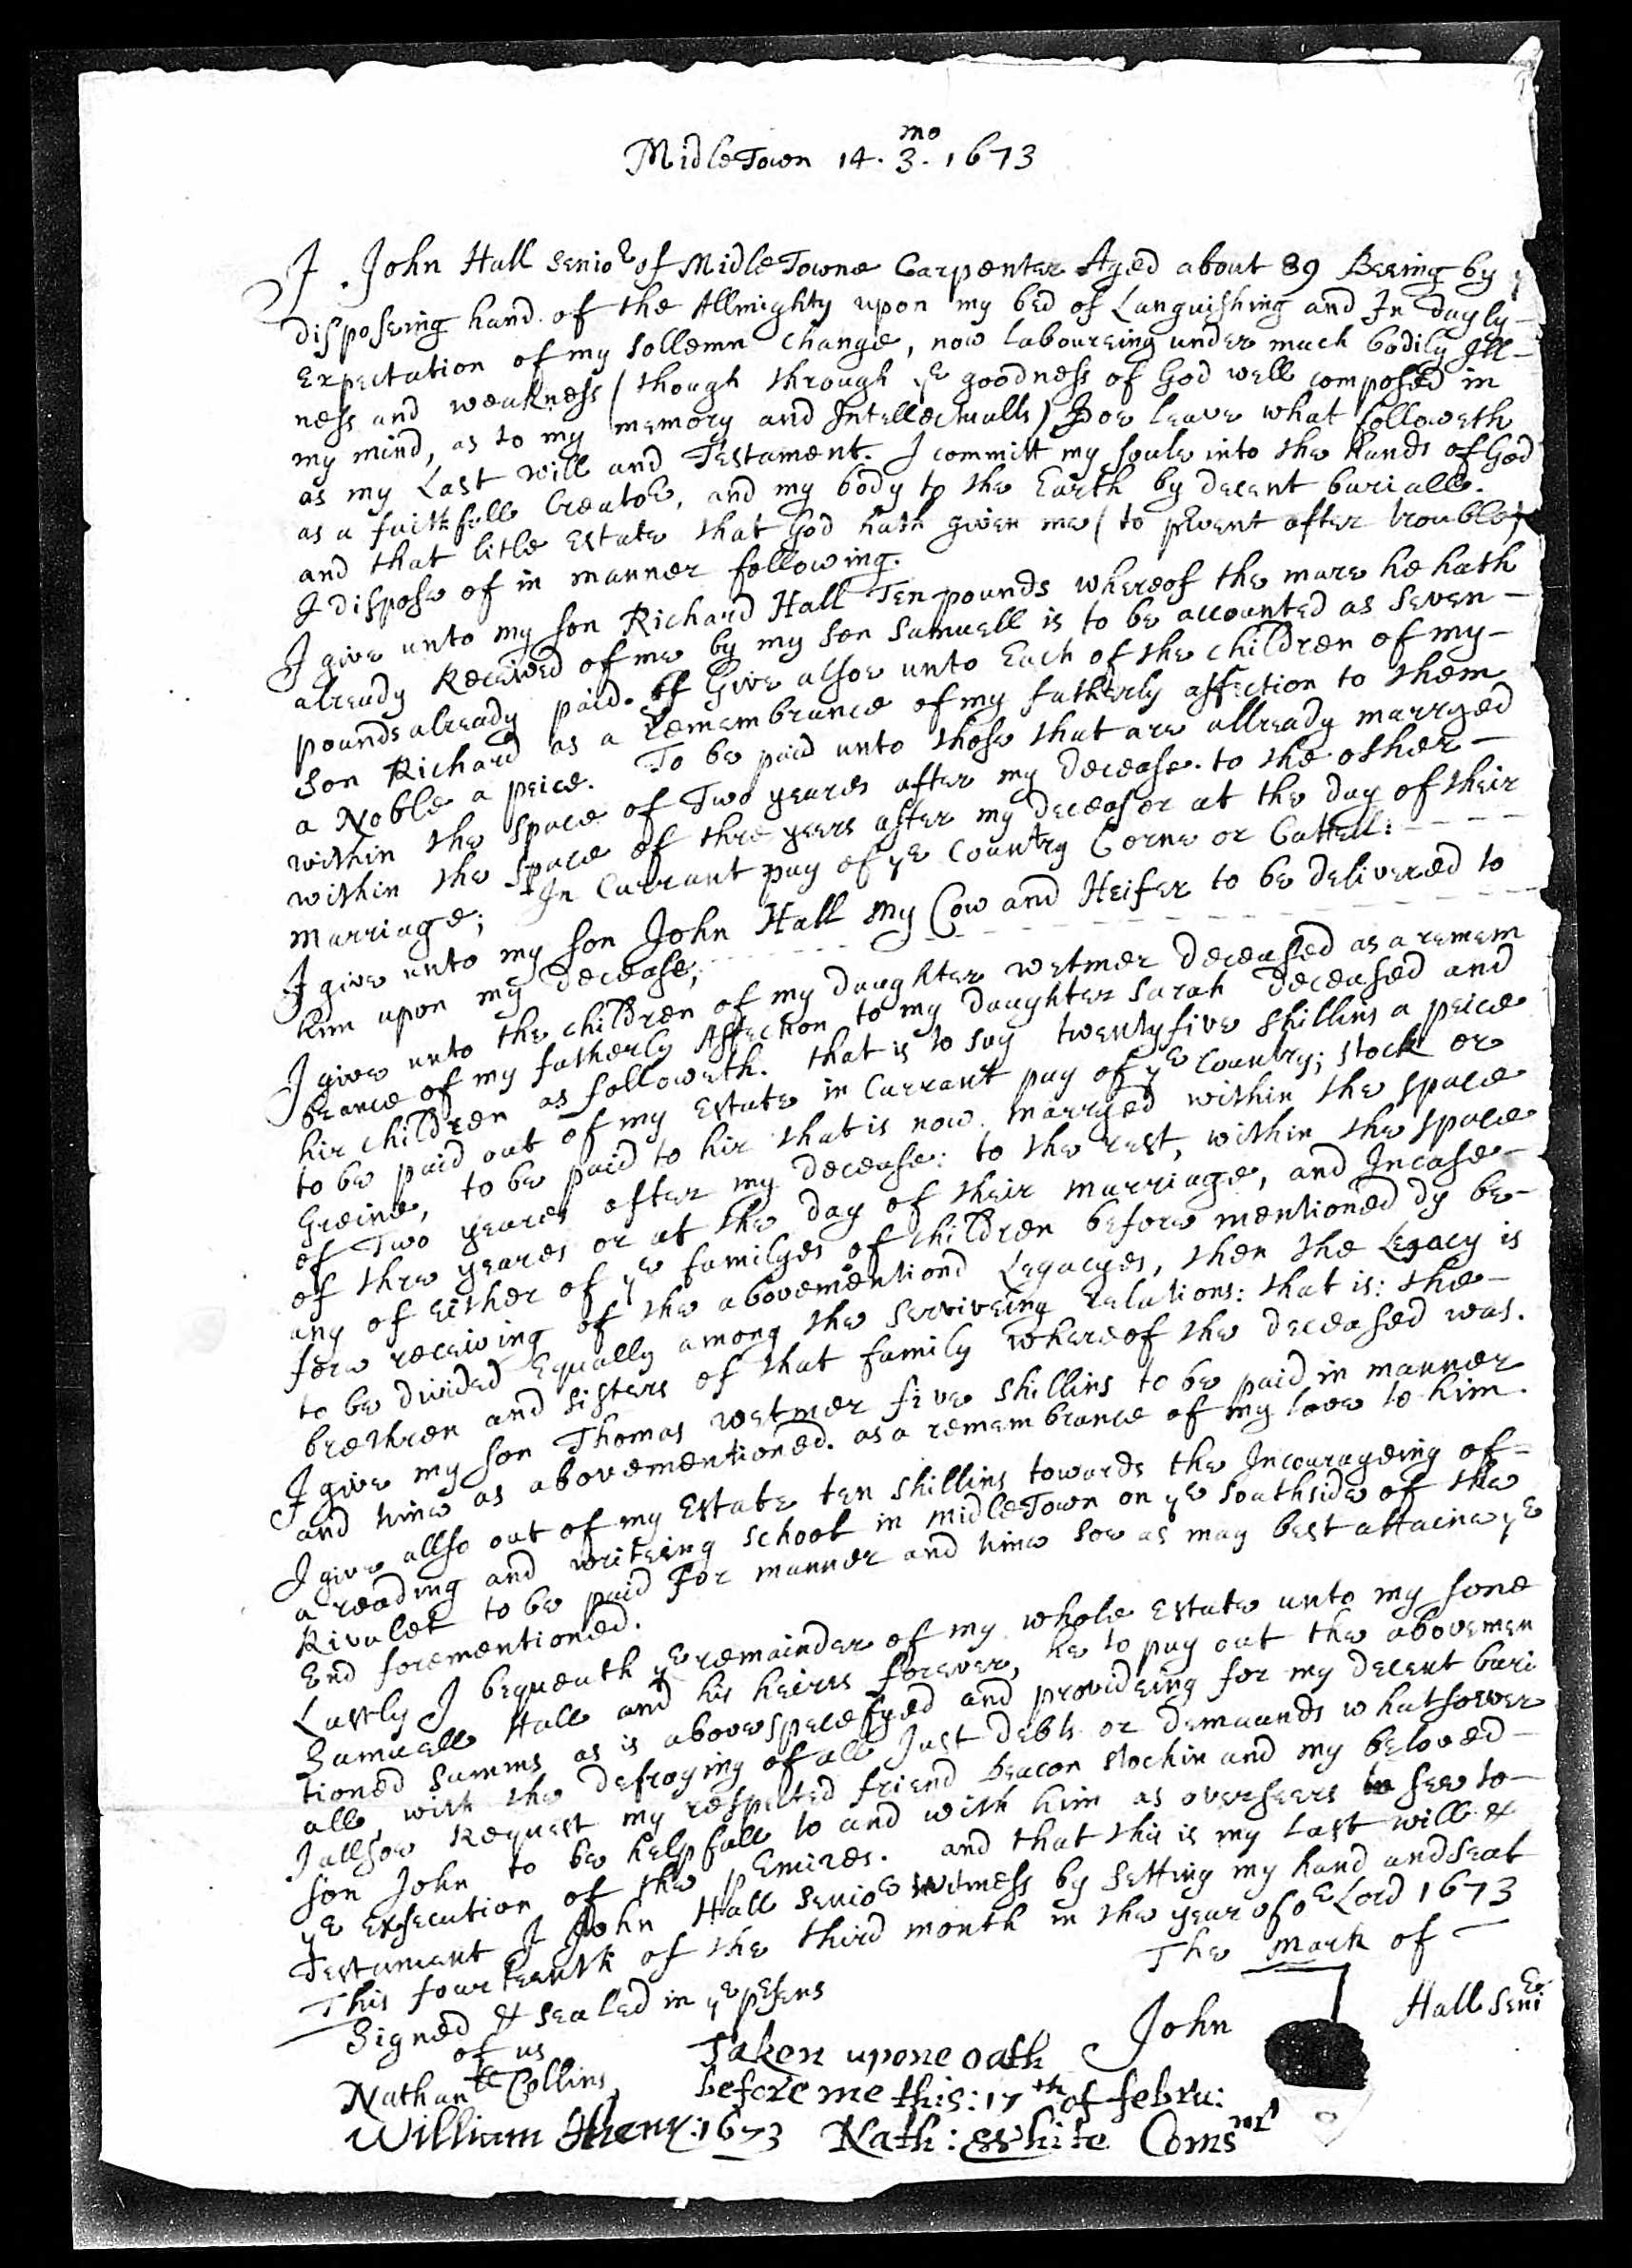 mo
MidleTown 14. 3. 1673
I John Hall Senior of MidleTowne Carpenter Aged about 89 Beeing by y
disposeing hand of the Allmighty upon my bed of Languishing and In dayly-
Expectation of my sollemn change, now laboureing under much bodily Ill-
ness and weakness (though through ye goodness of God well composed in
my mind, as to my memory and Intellectualls) Doe leave what followeth
as my Last will and Testament. I committ my soule into the hands of God
as a faithfull Creator, and my body to the Earth by decent buriall.
and that litle Estate that God hath given me (to prvent after trouble)
I dispose of in manner following.
I give unto my son Richard Hall Ten pounds whereof the mare he hath
already Received of me by my son Samuell is to be accounted as seven-
pounds already paid. I Give alsoe unto Each of the children of my-
son Richard as a Remembrance of my fatherly affection to them
a Noble a peice. To be paid unto those that are allready marryed
within the space of Two yeares after my decease. to the other-
within the space of thre yeers after my decease or at the day of their
marriage; In Currant pay of ye Country Corne or Cattell:
I give unto my son John Hall my Cow and Heifer to be delivered to
him upon my decease;
I give unto the children of my daughter wetmer deceased as a remem
brance of my fatherly Affection to my daughter Sarah deceased and
hir children as followeth. that is to say twenty five shillins a peice
to be paid out of my Estate in Currant pay of ye Country; stock or
Greine, to be paid to hir that is now marryed within the space
of Two yeares after my decease: to the rest, within the space
of thre yeares or at the day of their marriage, and Incase-
any of Either of ye familyes of children before mentioned dy be-
fore receiving of the abovementiond Legacyes, then the Legacy is
to be divided Equally among the surviveing Relations: that is: the-
brethren and sisters of that family whereof the deceased was.
I give my son Thomas wetmer five shillins to be paid in manner
and time as abovementioned. as a remembrance of my love to him.
I give allso out of my Estate ten shillins towards the Incourageing of-
a reading and writeing school in midleTown on ye southside of the
Rivulet to be paid For manner and time soe as may best attaine ye
End forementioned.
Lastly I bequeath ye remainder of my whole Estate unto my sone
Samuell Hall and his heires forever, he to pay out the abovemen
tioned summs as is above specefyed and provideing for my decent buri
all, with the defraying of all Just debts or demaunds whatsoever
I allsoe Request my respected friend Deacon Stockin and my beloved-
son John to be helpfull to and with him as overseers to see to-
ye Exsecution of the premises. and that this is my last will &
Testament I John Hall Senior witness by setting my hand and seal
This fourteenth of the third month in the year of or Lord 1673
Signed & sealed in ye presens
of us
The mark of
John Hall Senir
Nathanll Collins
William
Taken upone oath
before me this: 17th of febru:
1673 Nath: White Comsnr